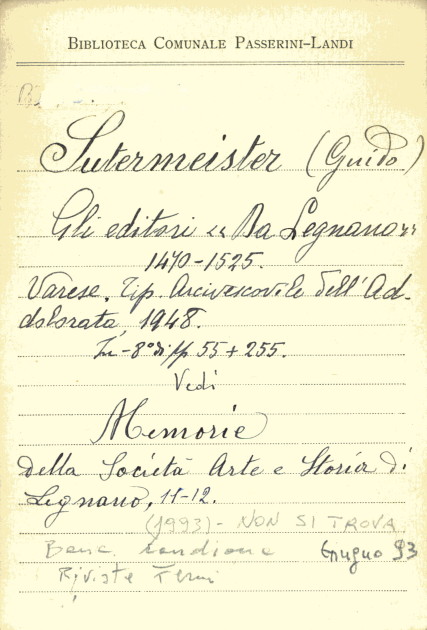 BIBLIOTECA COMUNALE PASSERINI-LANDI
Sutermeister (Guido)
Gli editori « Da Legnano »
1470-1525.
Varese, Tip. Arcivescovile dell'Ad-
dolorata, 1948.
In-8° di pp 55 + 255.
Vedi
Memorie
della Società Arte e Storia di
Legnano, 11-12.
(1993) - NON SI TROVA
Giugno 93
Riviste